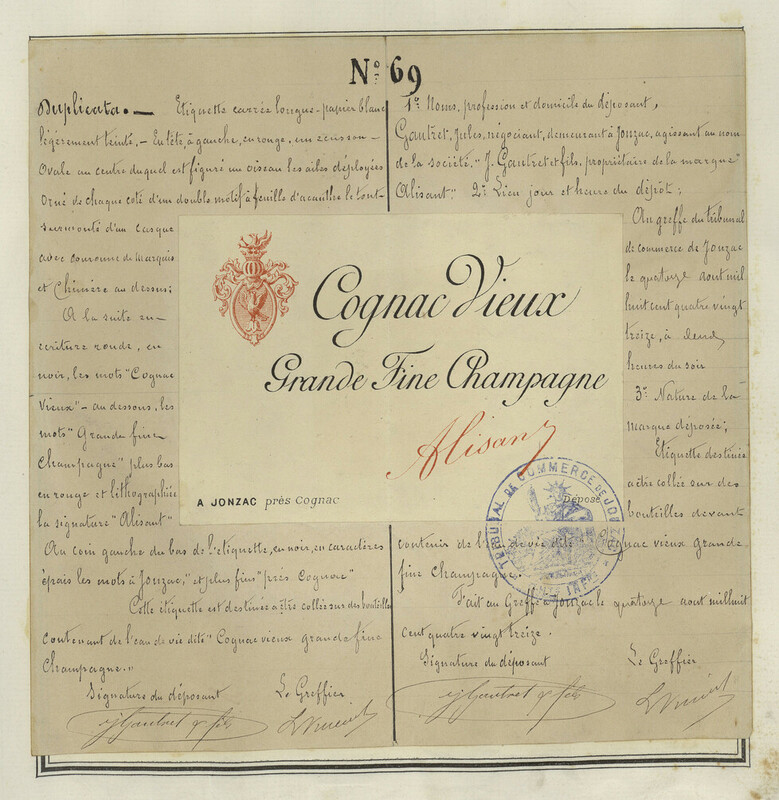 N° 69
Duplicata. — Etiquette carrée longue - papier blanc
légèrement teinté. - En tête, à gauche, en rouge, un écusson -
Ovale au centre duquel est figuré un oiseau les ailes déployées
Orné de chaque coté d'un double motif à feuille d'acanthe le tout -
surmonté d'un casque
avec couronne de Marquis
et Chimère au dessus;
A la suite en
écriture ronde, en
noir, les mots "Cognac
Vieux" - au dessous, les
mots "Grande fine
Champagne" plus bas
en rouge et lithographiée
la signature "Alisant"
Au coin gauche du bas de l'étiquette, en noir, en caractères
épais les mots à Jonzac," et plus fins "près Cognac"
Cette étiquette est destinée a être collée sur des bouteilles
contenant de l'eau de vie dite "Cognac vieux grande fine
Champagne."
Signature du déposant Le Greffier
J Gautret & fils
1° Noms, profession et domicile du déposant,
Gautret, Jules, négociant, demeurant à Jonzac, agissant au nom
de la société, "J. Gautret et fils, propriétaire de la marque"
Alisant". 2° Lieu jour et heure du dépôt;
Au greffe du tribunal
de commerce de Jonzac
le quatorze aout mil
huit cent quatre vingt
treize, à deux
heures du soir
3° Nature de la
marque déposée;
Etiquette destinée
a être collée sur des
bouteilles devant
contenir de l'eau de vie dite Cognac vieux grande
fine Champagne
Fait au Greffe à Jonzac le quatorze aout mil huit
cent quatre vingt treize.
Signature du déposant Le Greffier
J Gautret & fils
Cognac Vieux
Grande Fine Champagne
Alisant
A JONZAC près Cognac
Déposé
TRIBUNAL DE COMMERCE DE JONZAC